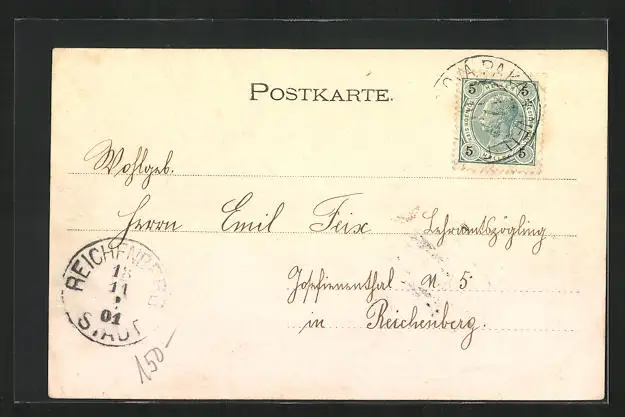 POSTKARTE.
5 5
5 5
Wohlgeb.
Herrn Emil Feix Lehramtszögling
Josefienenthal N. 5
in Reichenberg.
REICHENBERG
18
11
01
STADT
150-